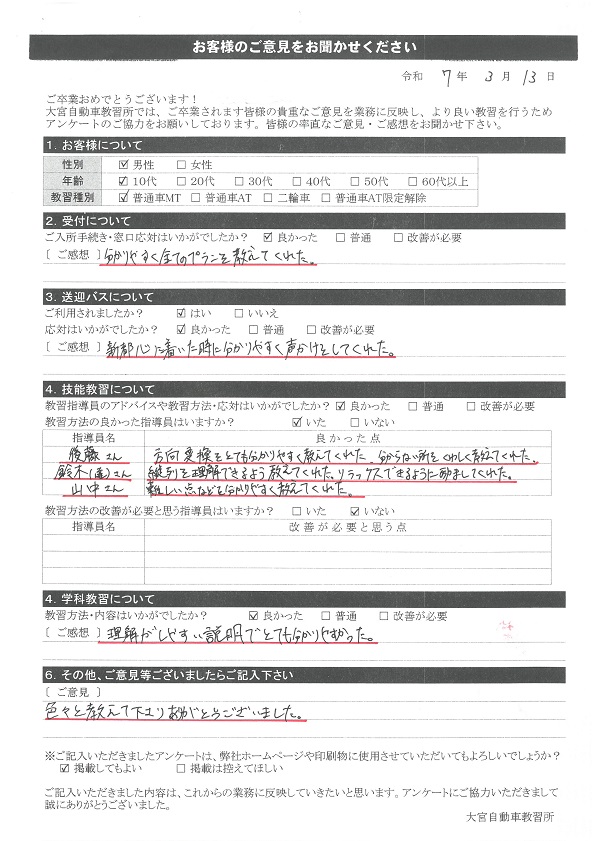 お客様のご意見をお聞かせください
令和 7 年 3 月 13 日
ご卒業おめでとうございます！
大宮自動車教習所では、ご卒業されます皆様の貴重なご意見を業務に反映し、より良い教習を行うため
アンケートのご協力をお願いしております。皆様の率直なご意見・ご感想をお聞かせ下さい。
1. お客様について
性別 ☑ 男性 □ 女性
年齢 ☑ 10代 □ 20代 □ 30代 □ 40代 □ 50代 □ 60代以上
教習種別 ☑ 普通車MT □ 普通車AT □ 二輪車 □ 普通車AT限定解除
2. 受付について
ご入所手続き・窓口応対はいかがでしたか？ ☑ 良かった □ 普通 □ 改善が必要
［ ご感想 ］分かりやすく全てのプランを教えてくれた。
3. 送迎バスについて
ご利用されましたか？ ☑ はい □ いいえ
応対はいかがでしたか？ ☑ 良かった □ 普通 □ 改善が必要
［ ご感想 ］新都心に着いた時に分かりやすく声かけをしてくれた。
4. 技能教習について
教習指導員のアドバイスや教習方法・応対はいかがでしたか？ ☑ 良かった □ 普通 □ 改善が必要
教習方法の良かった指導員はいますか？ ☑ いた □ いない
指導員名 良かった点
後藤さん 方向変換をとても分かりやすく教えてくれた、分からない所をくわしく教えてくれた、
鈴木(直)さん 縦列を理解できるよう教えてくれた、リラックスできるように励ましてくれた。
山中さん 難しい点などを分かりやすく教えてくれた。
教習方法の改善が必要と思う指導員はいますか？ □ いた ☑ いない
指導員名 改善が必要と思う点
4. 学科教習について
教習方法・内容はいかがでしたか？ ☑ 良かった □ 普通 □ 改善が必要
［ ご感想 ］理解がしやすい説明でとても分かりやすかった。
6. その他、ご意見等ございましたらご記入下さい
［ ご意見 ］
色々と教えて下さりありがとうございました。
※ご記入いただきましたアンケートは、弊社ホームページや印刷物に使用させていただいてもよろしいでしょうか？
☑ 掲載してもよい □ 掲載は控えてほしい
ご記入いただきました内容は、これからの業務に反映していきたいと思います。アンケートにご協力いただきまして
誠にありがとうございました。
大宮自動車教習所